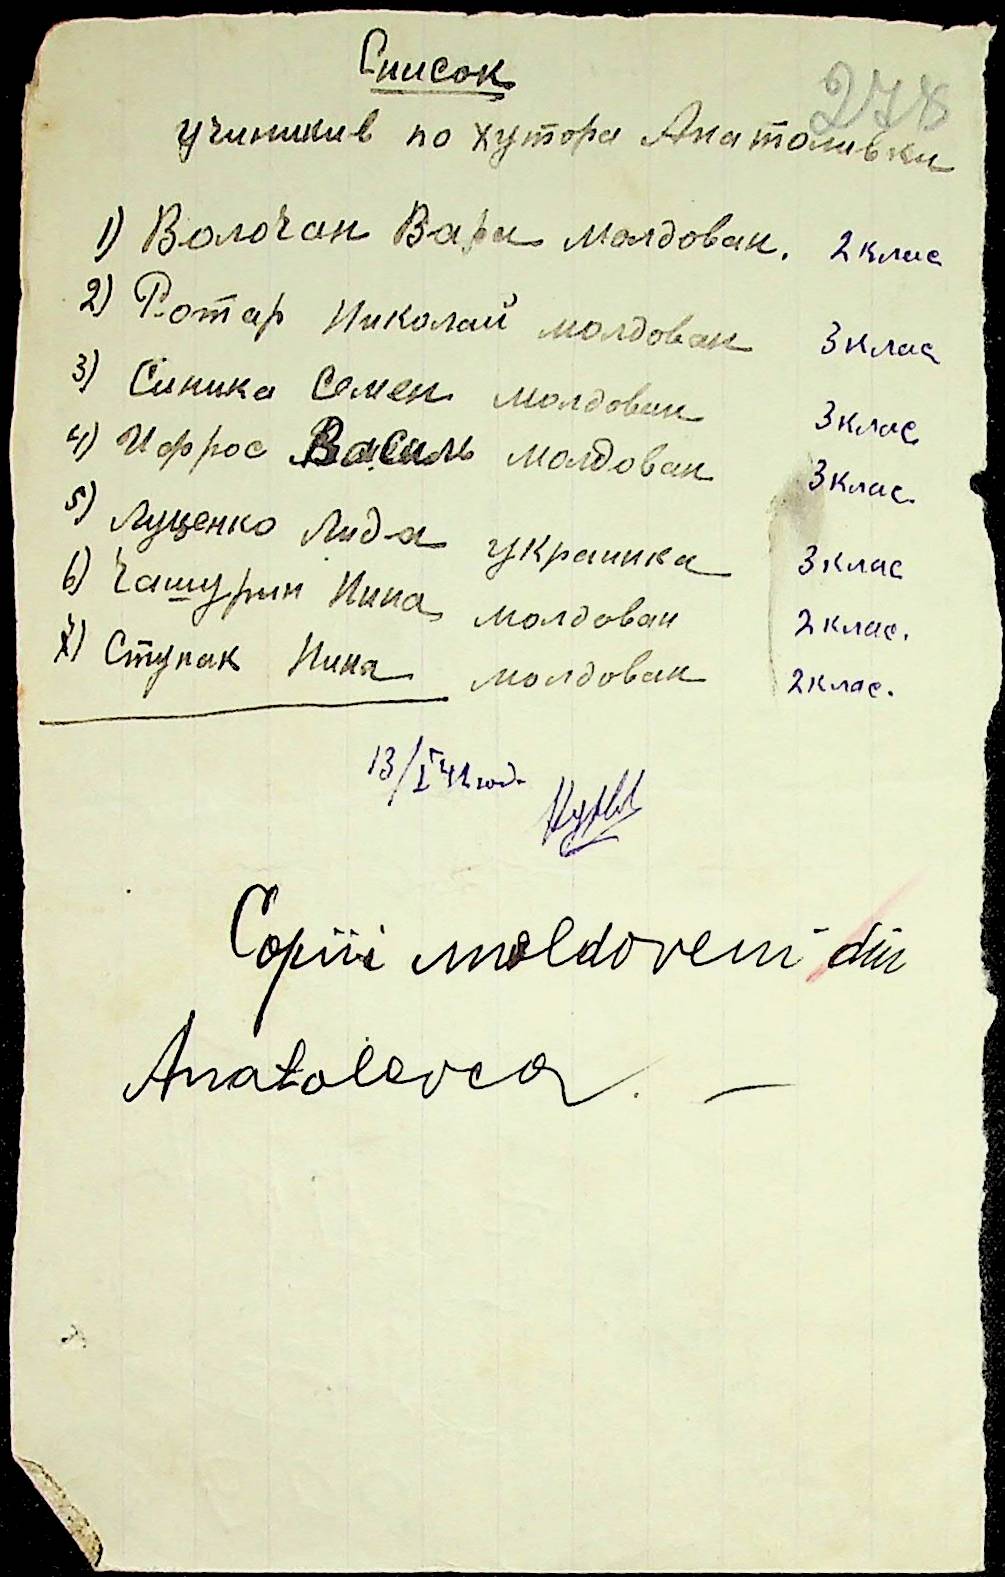 278
Список
учиникив по хутора Анатоливки
1) Волочан Варя молдован. 2 клас
2) Ротар Николай молдован 3 клас
3) Синика Семен молдован 3 клас
4) Ифрос Василь молдован 3 клас.
5) Луценко Лида украинка 3 клас
6) Чашурин Нина молдован 2 клас.
7) Ступак Нина молдован 2 клас.
13/I 42 год.
Copiii moldoveni din
Anatolevca. —